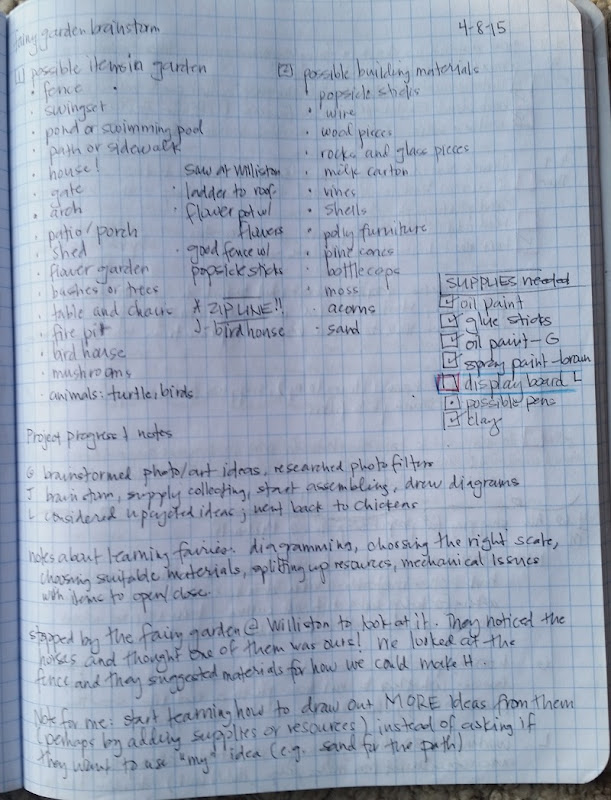 fairy garden brainstorm
4-8-15
[1] possible items in garden
• fence
• swingset
• pond or swimming pool
• path or sidewalk
• house!
• gate
• arch
• patio/porch
• shed
• flower garden
• bushes or trees
• table and chairs
• fire pit
• bird house
• mushrooms
• animals: turtle, birds
saw at Williston
• ladder to roof
• flower pot w/
flowers
• good fence w/
popsicle sticks
* ZIP LINE!!
J - birdhouse
[2] possible building materials
• popsicle sticks
• wire
• wood pieces
• rocks and glass pieces
• milk carton
• vines
• shells
• polly furniture
• pine cones
• bottlecaps
• moss
• acorns
• sand
SUPPLIES needed
oil paint
glue sticks
oil paint - G
spray paint - brown
display board L
possible pens
clay
Project progress & notes
G brainstormed photo/art ideas, researched photo filters
J brainstorm, supply collecting, start assembling, drew diagrams
L considered upcycled ideas; went back to chickens
notes about learning fairies: diagramming, choosing the right scale,
choosing suitable materials, splitting up resources, mechanical issues
with items to open/close.
stopped by the fairy garden @ Williston to look at it. They noticed the
houses and thought one of them was ours! We looked at the
fence and they suggested materials for how we could make it.
Note for me: start learning how to draw out MORE ideas from them
(perhaps by adding supplies or resources) instead of asking if
they want to use "my" idea (e.g. sand for the path)